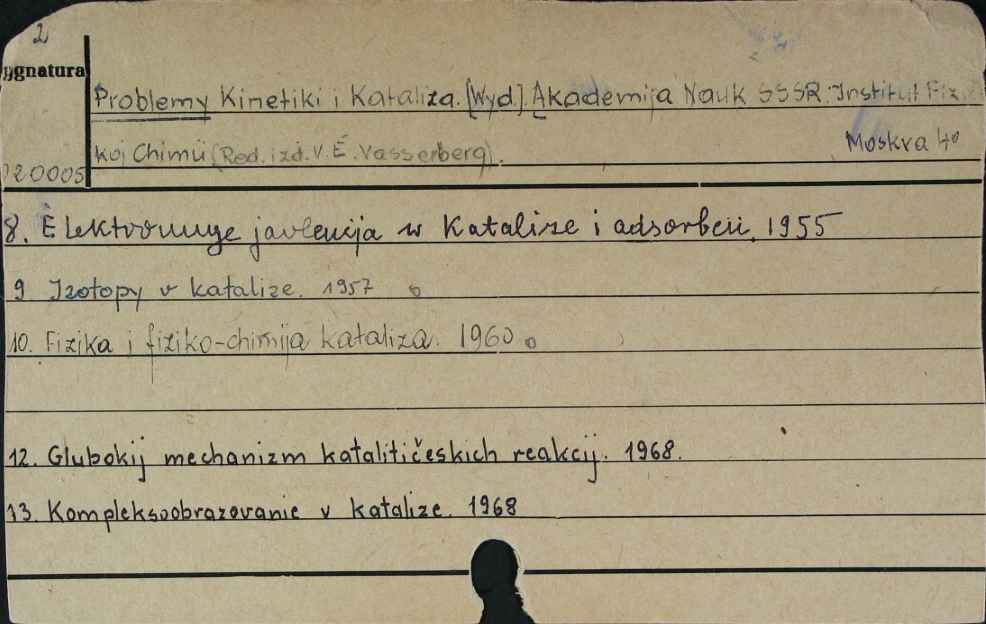 2
ygnatura
Problemy Kinetiki i Kataliza. [Wyd.] Akademija Nauk SSSR. Institut Fiz
koj Chimii (Red. izd. V. É. Vasserberg).
Moskva 40
20005
8. Élektronnye javlenija w Katalize i adsorbcii. 1955
9 Izotopy v katalize. 1957
10. Fizika i fiziko-chimija kataliza. 1960
12. Glubokij mechanizm katalitičeskich reakcij. 1968.
13. Kompleksoobrazovanie v katalize. 1968